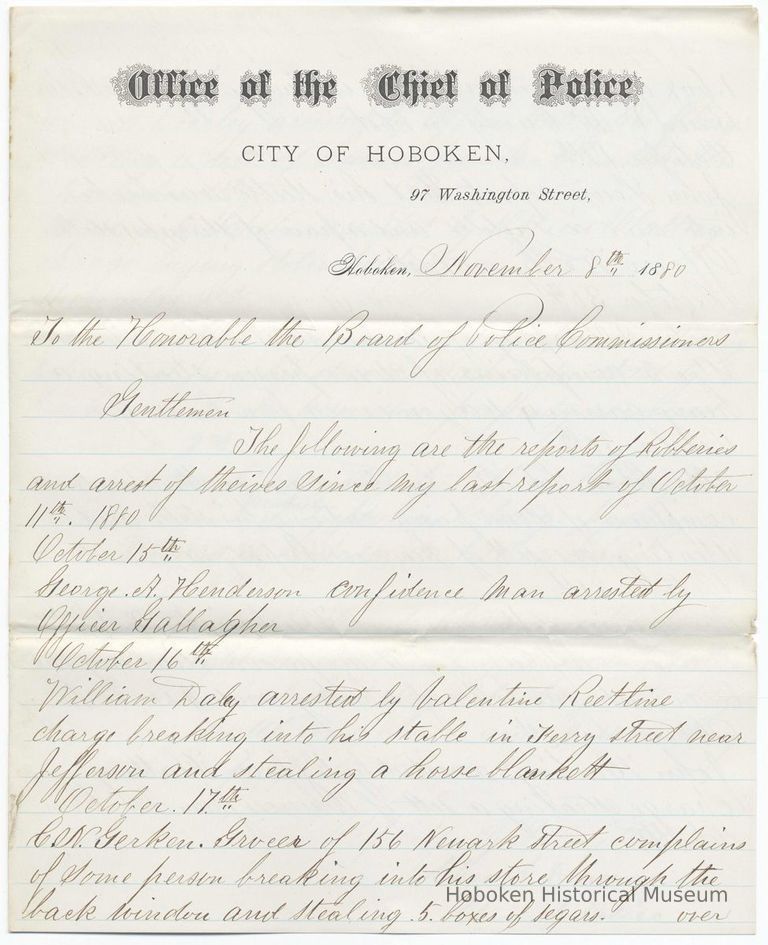 Office of the Chief of Police
CITY OF HOBOKEN,
97 Washington Street,
Hoboken, November 8th 1880
To the Honorable the Board of Police Commissioners
Gentlemen
The following are the reports of Robberies
and arrest of theives Since my last report of October
11th. 1880
October 15th
George. A. Henderson confidence man arrested by
Officer Gallagher
October 16th
William Daly arrested by Valentine
charge breaking into his stable in Ferry Street near
Jefferson and stealing a horse blankett
October. 17th
C.N. Gerken. Grocer of 156 Newark Street complains
of some person breaking into his store through the
back window and stealing .5. boxes of segars. over
Hoboken Historical Museum